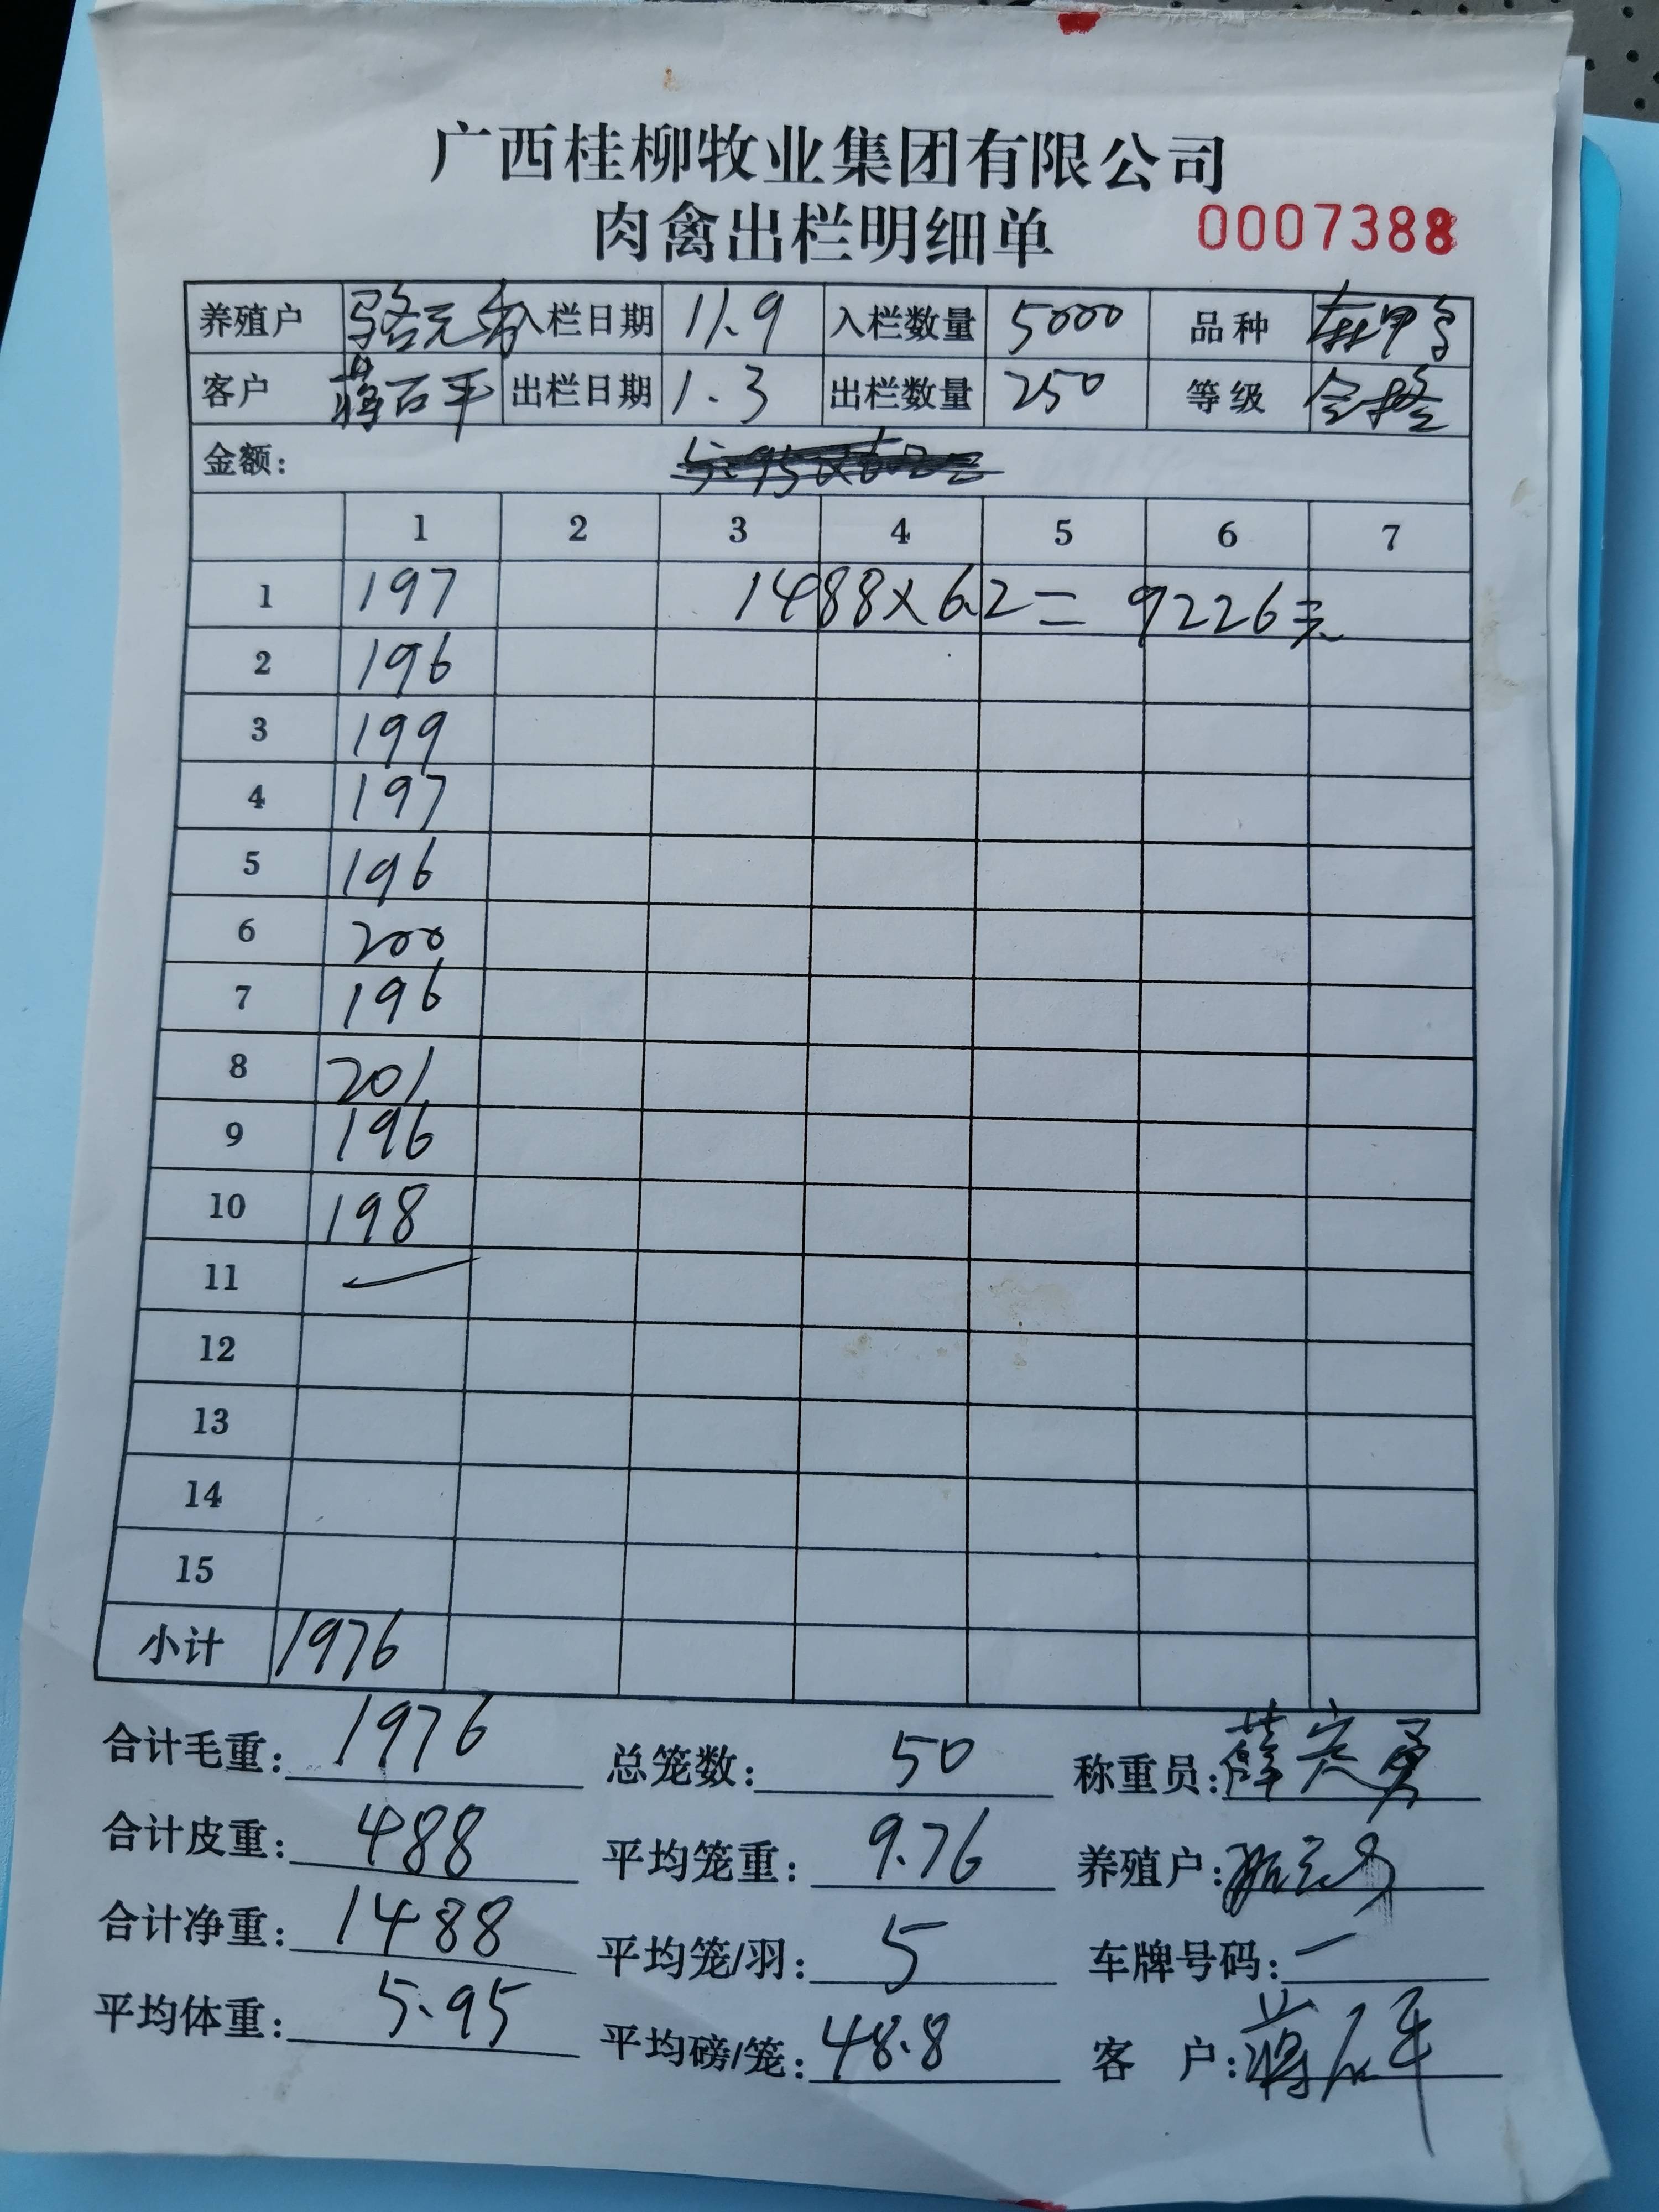 广西桂柳牧业集团有限公司
肉禽出栏明细单 0007388
养殖户 骆元 入栏日期 11.9 入栏数量 5000 品种
客户 蒋石平 出栏日期 1.3 出栏数量 250 等级 合格
金额:
1 2 3 4 5 6 7
1 197 1488×6.2=9226元
2 196
3 199
4 197
5 196
6 200
7 196
8 201
9 196
10 198
11
12
13
14
15
小计 1976
合计毛重: 1976 总笼数: 50 称重员: 薛宏勇
合计皮重: 488 平均笼重: 9.76 养殖户:
合计净重: 1488 平均笼/羽: 5 车牌号码: 一
平均体重: 5.95 平均磅/笼: 48.8 客 户: 蒋石平